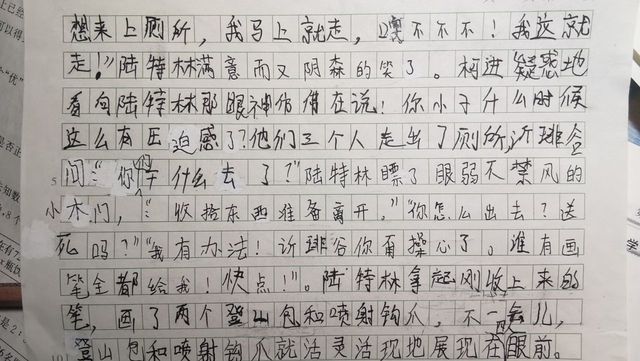 想来上厕所，我马上就走，噢不不不！我这就
走！”陆特林满意而又阴森的笑了。柯进疑惑地
看向陆特林那眼神仿佛在说！你小子什么时候
这么有压迫感了？他们三个人走出了厕所，沂琲谷
问：“你干什么去了？”陆特林瞟了眼弱不禁风的
小木门，：收拾东西准备离开。”“你怎么出去？送
死吗？”“我有办法！沂琲谷你甭操心了。谁有画
笔全都给我！快点！”。陆特林拿起刚收上来的
笔，画了两个登山包和喷射钩爪，不一会儿，
登山包和喷射钩爪就活灵活现地展现在眼前。